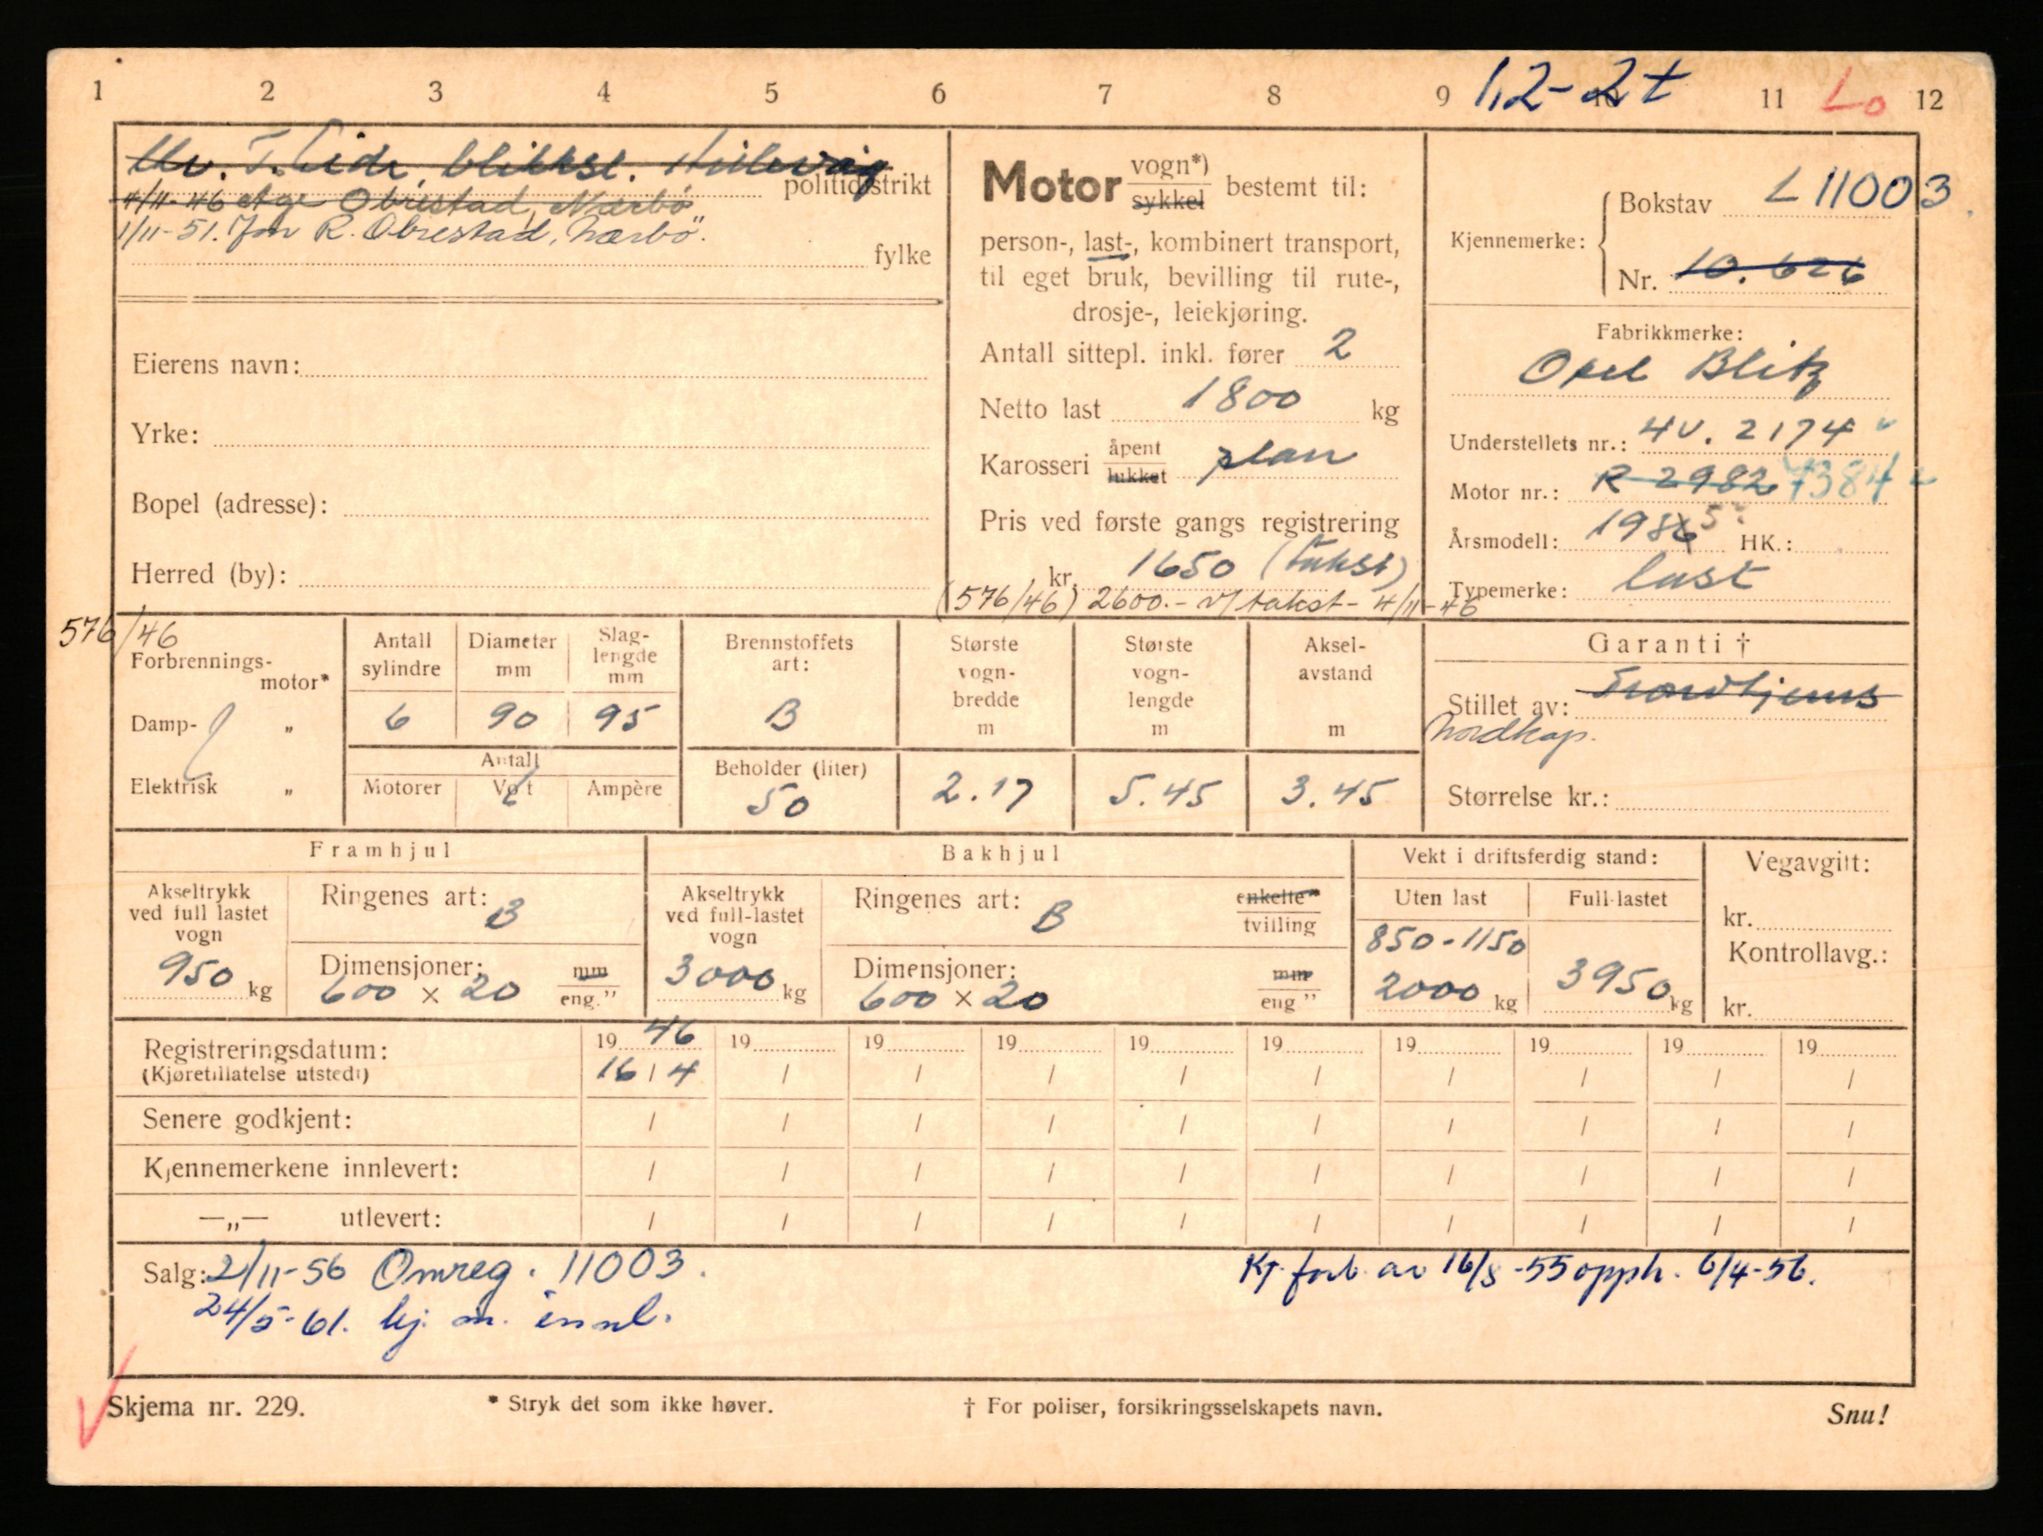 1 2 3 4 5 6 7 8 9 10 11 12
1,2-2t
Lo
politidistrikt
4/11-46 Åge Obrestad, Nærbö
1/11-51. Jon R. Obrestad, Nærbö.
fylke
Eierens navn:
Yrke:
Bopel (adresse):
Herred (by):
Motor vogn*) sykkel bestemt til:
person-, last-, kombinert transport,
til eget bruk, bevilling til rute-,
drosje-, leiekjøring.
Antall sittepl. inkl. fører 2
Netto last 1800 kg
Karosseri åpent lukket plan
Pris ved første gangs registrering
kr. 1650 (takst)
(576/46) 2600.- v/ takst- 4/11-46
Kjennemerke:
Bokstav L 11003
Nr. 10.626
Fabrikkmerke:
Opel Blitz
Understellets nr.: 4U. 2174
Motor nr.: R 2982 7384
Årsmodell: 1936 5 HK.:
Typemerke: last
576/46
Forbrennings-
motor*
Damp- „
Elektrisk „
Antall sylindre 6
Diameter mm 90
Slag-lengde mm 95
Antall
Motorer Volt Ampère
Brennstoffets art: B
Beholder (liter) 50
Største vogn-bredde m 2.17
Største vogn-lengde m 5.45
Aksel-avstand m 3.45
Garanti †
Stillet av:
Nordkap.
Størrelse kr.:
Framhjul
Akseltrykk ved full lastet vogn
950 kg
Ringenes art: B
Dimensjoner: mm
600 × 20 eng.”
Bakhjul
Akseltrykk ved full-lastet vogn
3000 kg
Ringenes art: B enkelte* tvilling
Dimensjoner: mm
600 × 20 eng ”
Vekt i driftsferdig stand:
Uten last Full-lastet
850-1150
2000 kg 3950 kg
Vegavgift:
kr.
Kontrollavg.:
kr.
Registreringsdatum: 19 46 19 19 19 19 19 19 19 19 19
(Kjøretillatelse utstedt) 16 / 4 / / / / / / / / /
Senere godkjent: / / / / / / / / / /
Kjennemerkene innlevert: / / / / / / / / / /
—„— utlevert: / / / / / / / / / /
Salg: 21/11-56 Omreg. 11003.
Kj. forb. av 16/8-55 opph. 6/4-56.
24/5-61. kj. m. innl.
Skjema nr. 229.
* Stryk det som ikke høver.
† For poliser, forsikringsselskapets navn.
Snu!